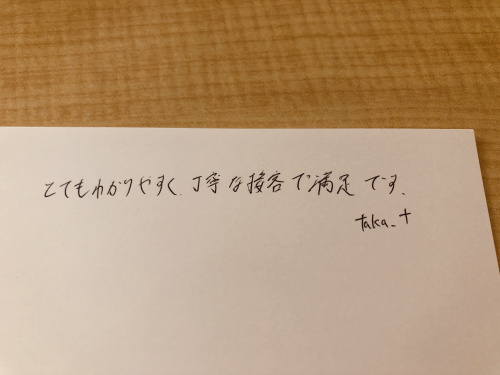 とてもわかりやすく、丁寧な接客で満足です。
taka_t